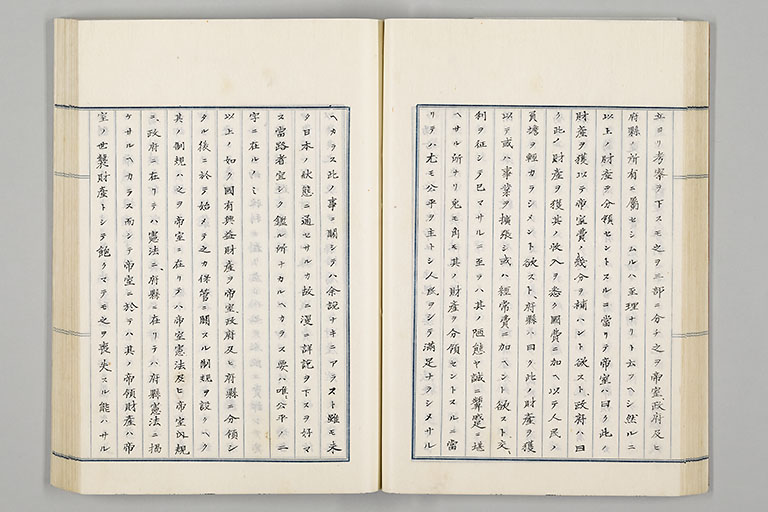 立ヨリ考察ヲ下スモ之ヲ三部ニ分チ之ヲ帝室政府及ヒ
府縣ノ所有ニ屬セシムルハ至理ナリト云フヘシ然ルニ
以上ノ財産ヲ分領セントスルニ當リテ帝室ハ曰ク此ノ
財産ヲ獲以テ帝室費ノ幾分ヲ補ハント欲スト、政府ハ曰
ク此ノ財産ヲ獲其ノ収入ヲ悉ク國費ニ加ヘ以テ人民ノ
負擔ヲ輕カラシメント欲スト、府縣ハ曰ク此ノ財産ヲ獲
以テ或ハ事業ヲ擴張シ或ハ經常費ニ加ヘント欲スト、交
利ヲ征シテ已マサルニ至ヲハ其ノ陋態ヤ誠ニ顰蹙ニ堪
ヘサル所ナリ兎モ角モ其ノ財産ヲ分領セントスルニ當
リテハ尤モ公平ヲ主トシ人民ヲシテ滿足ナラシメサル
ヘカラス此ノ事ニ關シテハ余説ナキニアラスト雖モ未
タ日本ノ狀態ニ通セサルカ故ニ漫ニ詳記ヲ下スヲ好マ
ス當路者宜シク鑑ル所ナカルヘカラス要ハ唯、公平ノ二
字ニ在ルノミ
以上ノ如ク國有興益財産ヲ帝室、政府及ヒ府縣ニ分領シ
タル後ニ於テ始メテ之カ保管ニ關スル制規ヲ設クヘク
其ノ制規ハ之ヲ帝室ニ在リテハ帝室憲法及ヒ帝室内規
ニ、政府ニ在リテハ憲法ニ、府縣ニ在リテハ府縣憲法ニ掲
ケサルヘカラス而シテ帝室ニ於テハ其ノ帝領財産ハ帝
室ノ世襲財産トシテ飽クマテモ之ヲ喪失スル能ハサル